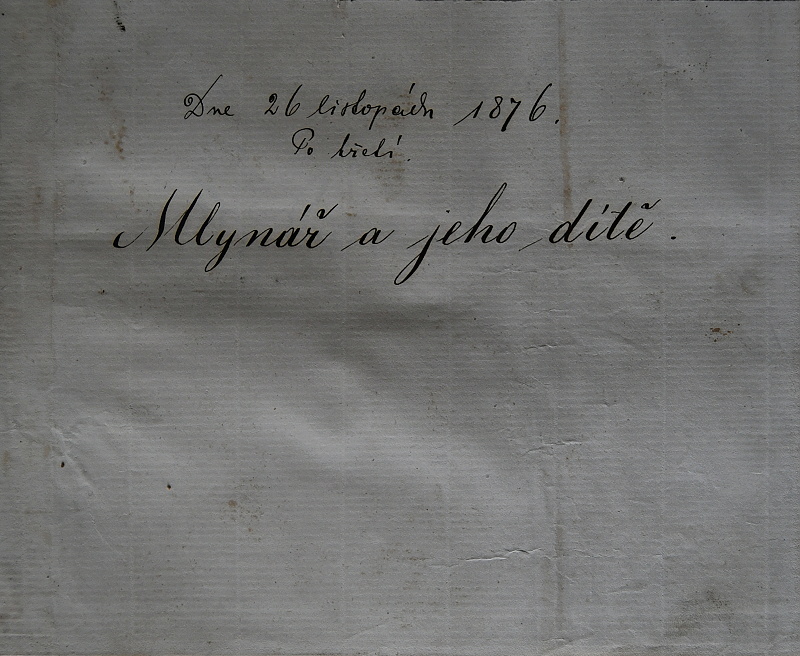 Dne 26 listopadu 1876.
Po třetí.
Mlynář a jeho dítě.